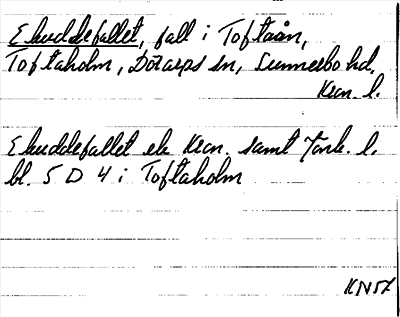 Ekuddefallet, fall i Toftaån,
Toftaholm, Dörarps sn, Sunnerbo hd,
Kron. l.
Ekuddefallet ek Kron. samt Jönk. l.
bl. 5 D 4 i Toftaholm